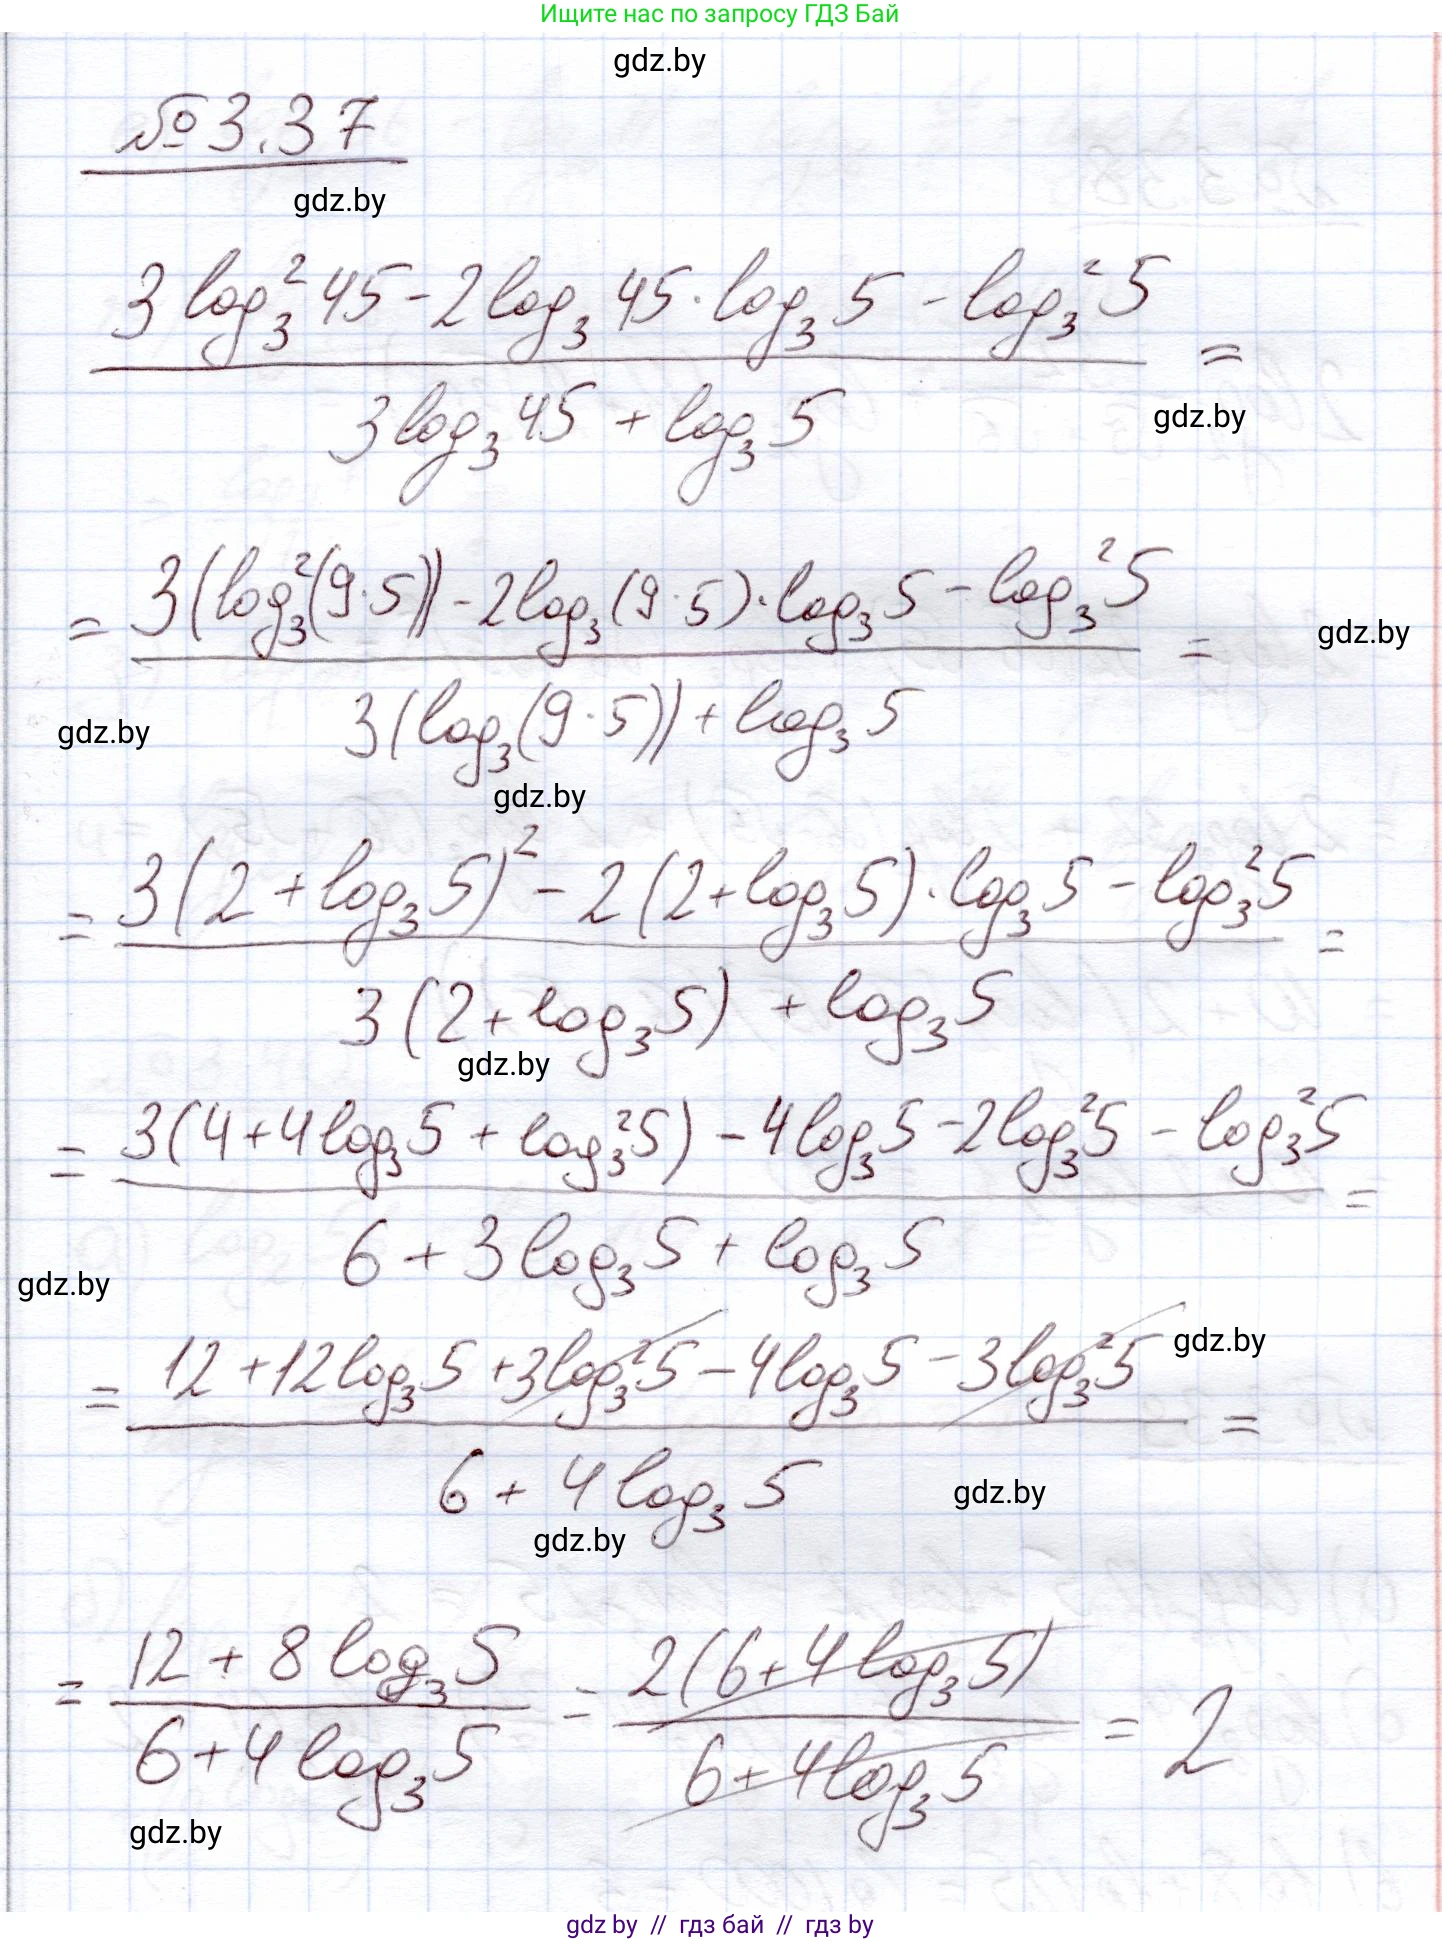 Ищите нас по запросу ГДЗ Бай
gdz.by
№ 3.37
gdz.by
3 log₃² 45 - 2 log₃ 45 · log₃ 5 - log₃² 5
=
3 log₃ 45 + log₃ 5
gdz.by
= 3(log₃²(9·5)) - 2 log₃ (9·5) · log₃ 5 - log₃² 5 =
gdz.by
3(log₃(9·5)) + log₃ 5
gdz.by
gdz.by
= 3(2 + log₃ 5)² - 2(2 + log₃ 5) · log₃ 5 - log₃² 5 =
3(2 + log₃ 5) + log₃ 5
gdz.by
= 3(4 + 4 log₃ 5 + log₃² 5) - 4 log₃ 5 - 2 log₃² 5 - log₃² 5 =
6 + 3 log₃ 5 + log₃ 5
gdz.by
gdz.by
= 12 + 12 log₃ 5 + 3 log₃² 5 - 4 log₃ 5 - 3 log₃² 5 =
6 + 4 log₃ 5
gdz.by
gdz.by
= 12 + 8 log₃ 5 = 2(6 + 4 log₃ 5) = 2
6 + 4 log₃ 5 6 + 4 log₃ 5
gdz.by
gdz by // гдз бай // гдз by